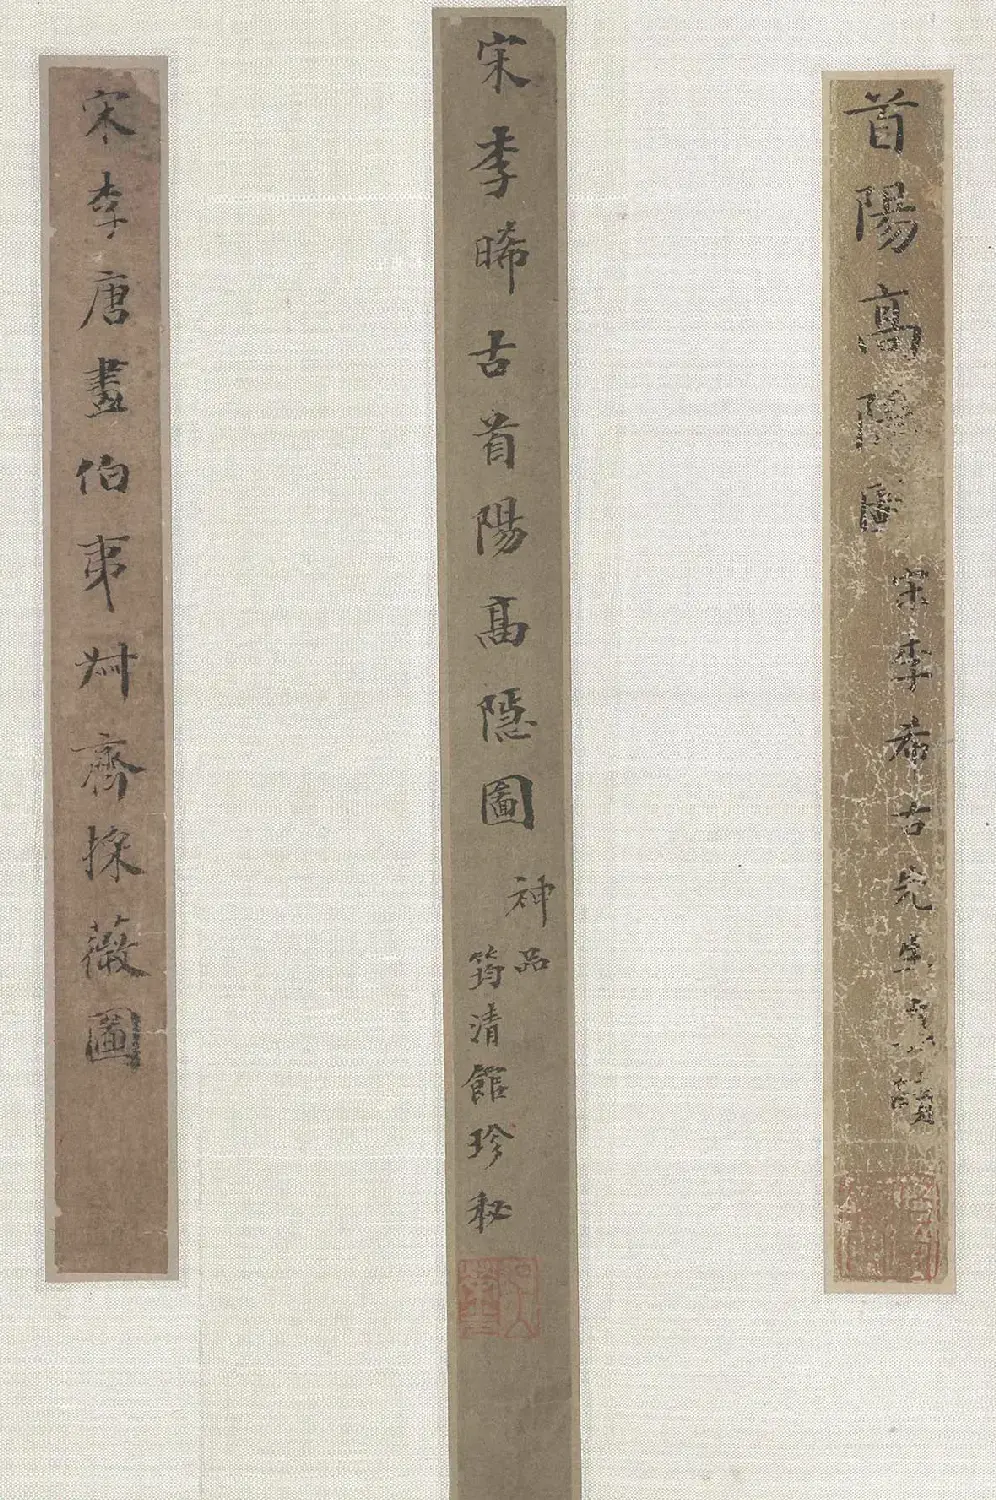 首陽高隱圖
宋李希古先生
宋李晞古首陽高隱圖
神品
筠清館珍秘
宋李唐畫伯夷叔齊採薇圖